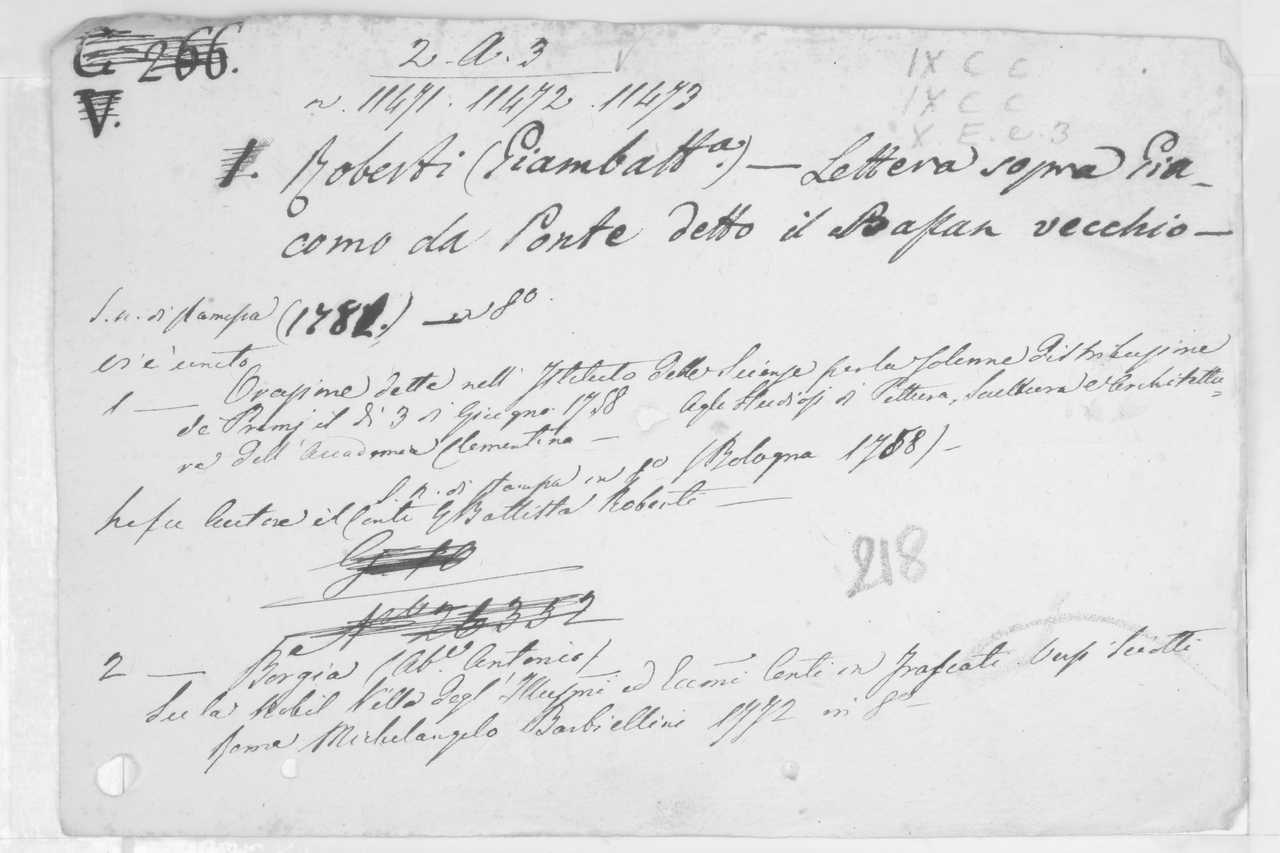 G. 266.
V.
2. A. 3 V
n. 11471. 11472. 11473
IX C C
IX C C
X. E. e. 3
1. Roberti (Giambatt.a) — Lettera sopra Gia-
como da Ponte detto il Bassan vecchio —
S. n. di stampa (1782.) — in 8o.
vi è unito
1 — Orazione detta nell' Istituto delle Scienze per la solenne distribuzione
de Premj il dì 3 di Giugno 1758 agli Studiosi di Pittura, Scultura e Architettu=
ra dell' Accademia Clementina —
S. n. di stampa in 8o (Bologna 1758) —
ne fu Autore il Conte GBattista Roberti —
G 10
26352
218
2 — Borgia (Ab.e Antonio)
Su la Nobil Villa degl' Illusmi ed Eccmi Conti in Frascati. Versi Sciolti
Roma Michelangelo Barbiellini 1772 in 8o